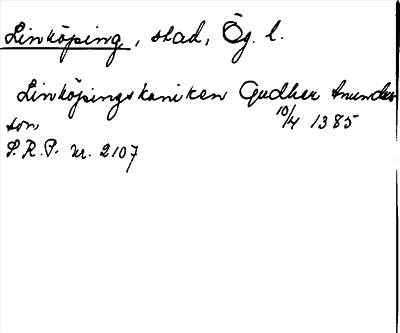 Linköping, stad, Ög. l.
Linköpingskaniken Gudher Anunder
son
10/4 1385
S.R.P. nr. 2107